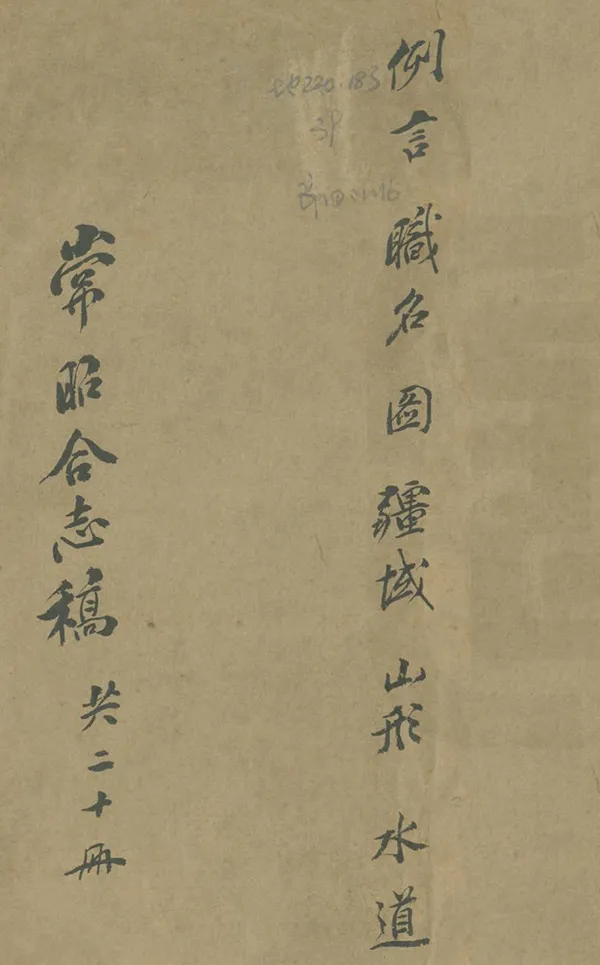 例言 職名 圖 疆域 山形 水道
地220.183
常昭合志稿 共二十冊